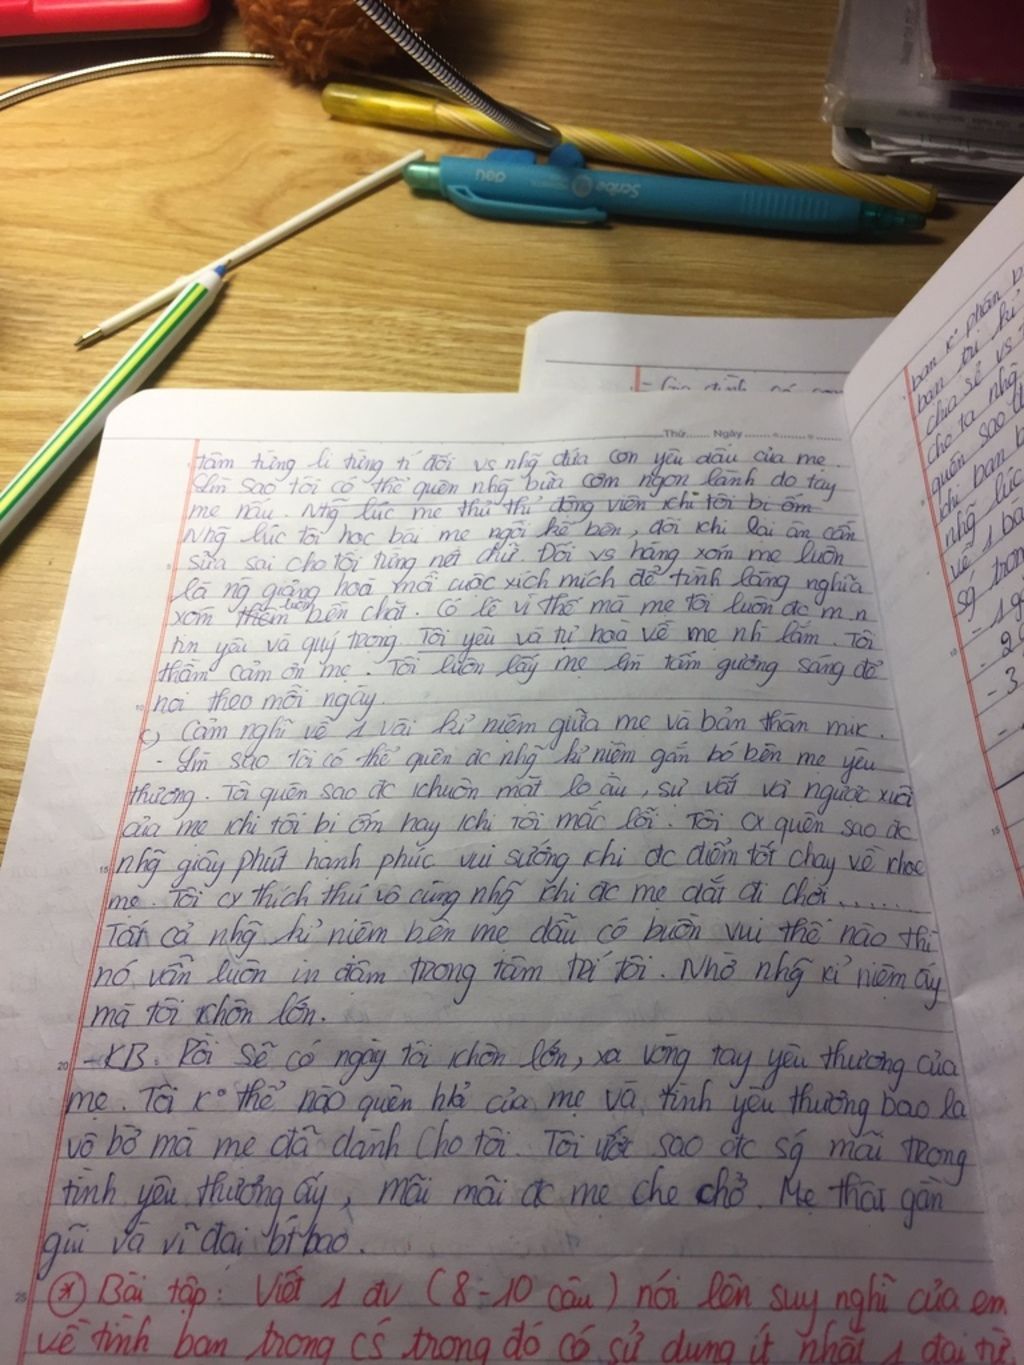 Scribe
deli
Thứ...... Ngày ......
tâm từng li từng tí đối vs nhg~ đứa con yêu dấu của mẹ.
Lm sao tôi có thể quên nhg~ bữa cơm ngon lành do tay
mẹ nấu. Nhg~ lúc mẹ thủ thỉ động viên khi tôi bị ốm
Nhg~ lúc tôi học bài mẹ ngồi kế bên, đôi khi lại ân cần
sửa sai cho tôi từng nét chữ. Đối vs hàng xóm mẹ luôn
là ng giảng hoà mỗi cuộc xích mích để tình làng nghĩa
xóm luôn bền chặt. Có lẽ vì thế mà mẹ tôi luôn đc m.n
tin yêu và quý trọng. Tôi yêu và tự hoà về mẹ nh` lắm. Tôi
thầm cảm ơn mẹ. Tôi luôn lấy mẹ lm tấm gương sáng để
noi theo mỗi ngày.
c) Cảm nghĩ về 1 vài kỉ niệm giữa mẹ và bản thân mk.
- Lm sao tôi có thể quên đc nhg~ kỉ niệm gắn bó bên mẹ yêu
thương. Tôi quên sao đc khuôn mặt lo âu, sự vất vả ngược xuôi
của mẹ khi tôi bị ốm hay khi tôi mắc lỗi. Tôi cx quên sao đc
nhg~ giây phút hạnh phúc vui sướng khi đc điểm tốt chạy về khoe
mẹ. Tôi cx thích thú vô cùng nhg~ khi đc mẹ dắt đi chơi........
Tất cả nhg~ kỉ niệm bên mẹ dẫu có buồn vui thế nào thì
nó vẫn luôn in đậm trong tâm trí tôi. Nhờ nhg~ kỉ niệm ấy
mà tôi khôn lớn.
- KB: Rồi sẽ có ngày tôi khôn lớn, xa vòng tay yêu thương của
mẹ. Tôi k° thể nào quên h/ả của mẹ và tình yêu thương bao la
vô bờ mà mẹ đã dành cho tôi. Tôi ước sao đc sg mãi trong
tình yêu thương ấy, mãi mãi đc mẹ che chở. Mẹ thật gần
gũi và vĩ đại bt bao.
* Bài tập: Viết 1 đv (8-10 câu) nói lên suy nghĩ của em
về tình bạn trong cs trong đó có sử dụng ít nhất 1 đại từ.
bạn k° phân b
bạn tri kỉ
chia sẻ vs
cho ta nhg~
quên sao
khi bạn b
nhg~ lúc
về 1 bà
sg trong
- 1
- 2
- 3